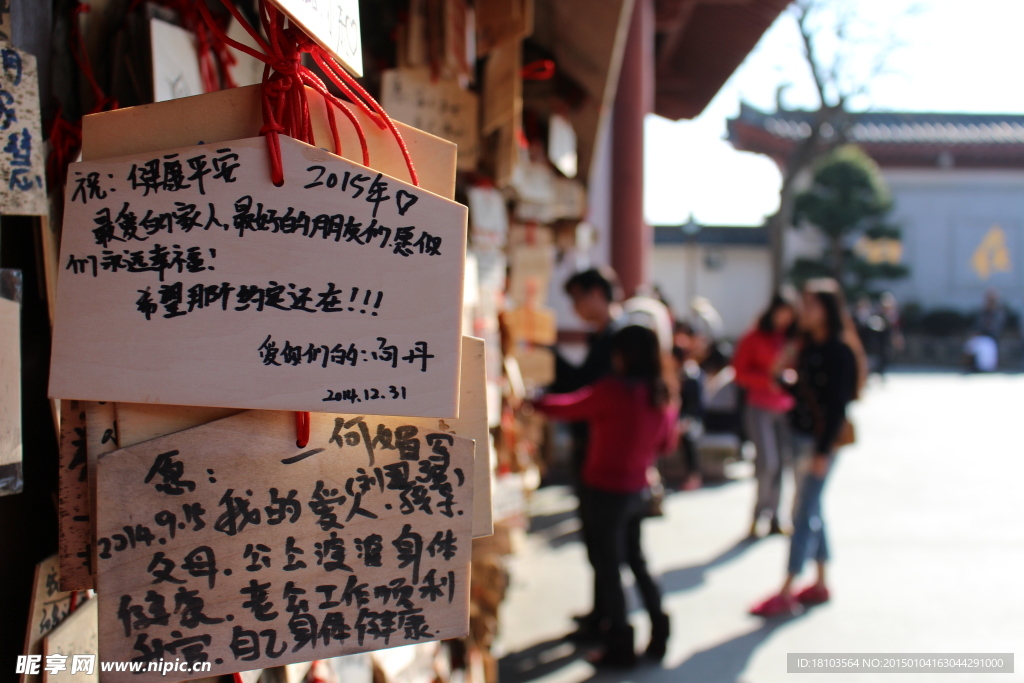 祝：健康平安
2015年♡
最爱的家人,最好的朋友们,愿你
们永远幸福！
希望那阡约定还在!!!
爱你们的：向丹
2014.12.31
愿：
何媚写
2014.9.15 我的爱人
孩子.
父母.公公婆婆身体
健康.老公工作顺利
自己身体健康.
昵享网 www.nipic.cn
ID:18103564 NO:20150104163044291000